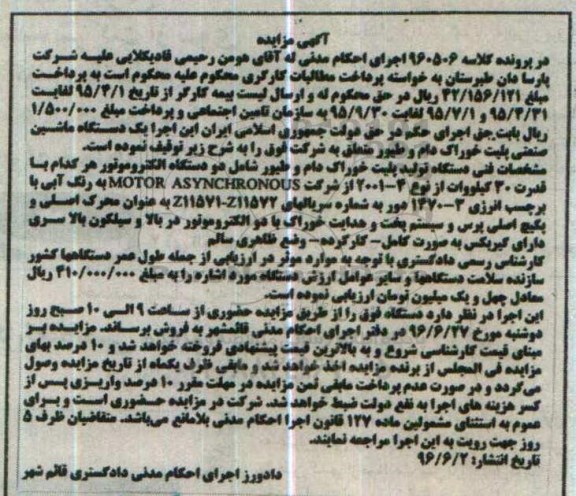 آگهی مزایده
در پرونده کلاسه ۹۶۰۵۰۶ اجرای احکام مدنی له آقای هومن رحیمی قادیکلایی علیه شرکت
پارسا دان طبرستان به خواسته پرداخت مطالبات کارگری محکوم علیه محکوم است به پرداخت
مبلغ ۴۲/۱۵۶/۱۲۱ ریال در حق محکوم له و ارسال لیست بیمه کارگر از تاریخ ۹۵/۴/۱ لغایت
۹۵/۴/۳۱ و ۹۵/۷/۱ لغایت ۹۵/۹/۳۰ به سازمان تامین اجتماعی و پرداخت مبلغ ۱/۵۰۰/۰۰۰
ریال بابت حق اجرای حکم در حق دولت جمهوری اسلامی ایران این اجرا یک دستگاه ماشین
صنعتی پلیت خوراک دام و طیور متعلق به شرکت فوق را به شرح زیر توقیف نموده است.
مشخصات فنی دستگاه تولید پلیت خوراک دام و طیور شامل دو دستگاه الکتروموتور هر کدام با
قدرت ۳۰ کیلووات از نوع ۴-۲۰۰۱ از شرکت MOTOR ASYNCHRONOUS به رنگ آبی با
برچسب انرژی ۳-۱۴۷۰ دور به شماره سریالهای Z۱۱۵۷۱-Z۱۱۵۷۲ به عنوان محرک اصلی و
پکیج اصلی پرس و سیستم پخت و هدایت خوراک با دو الکتروموتور در بالا و سیلکون بالا سری
دارای گیربکس به صورت کامل- کارکرده- وضع ظاهری سالم
کارشناس رسمی دادگستری با توجه به موارد موثر در ارزیابی از جمله طول عمر دستگاهها کشور
سازنده سلامت دستگاهها و سایر عوامل ارزش دستگاه مورد اشاره را به مبلغ ۴۱۰/۰۰۰/۰۰۰ ریال
معادل چهل و یک میلیون تومان ارزیابی نموده است.
این اجرا در نظر دارد دستگاه فوق را از طریق مزایده حضوری از ساعت ۹ الی ۱۰ صبح روز
دوشنبه مورخ ۹۶/۶/۲۷ در دفتر اجرای احکام مدنی قائمشهر به فروش برساند. مزایده بر
مبنای قیمت کارشناسی شروع و به بالاترین قیمت پیشنهادی فروخته خواهد شد و ۱۰ درصد بهای
مزایده فی المجلس از برنده مزایده اخذ خواهد شد و مابقی ظرف یکماه از تاریخ مزایده وصول
می‌گردد و در صورت عدم پرداخت مابقی ثمن مزایده در مهلت مقرر ۱۰ درصد واریزی پس از
کسر هزینه های اجرا به نفع دولت ضبط خواهد شد. شرکت در مزایده حضوری است و برای
عموم به استثنای مشمولین ماده ۱۲۷ قانون اجرا احکام مدنی بلامانع می‌باشد. متقاضیان ظرف ۵
روز جهت رویت به این اجرا مراجعه نمایند.
تاریخ انتشار: ۹۶/۶/۲
دادورز اجرای احکام مدنی دادگستری قائم شهر